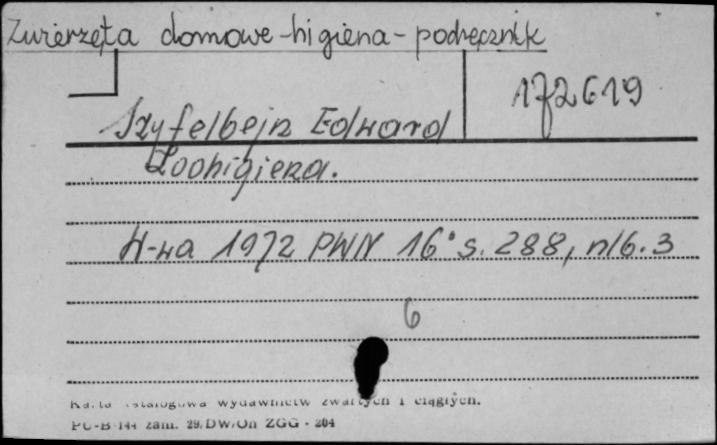 Zwierzęta domowe-higiena-podręcznik
172619
Szyfelbejn Edward
Zoohigiena.
W-wa 1972 PWN 16° s. 288, nlb. 3
6
Karta katalogowa wydawnictw zwartych i ciągłych.
PU-B-144 zam. 29/DW/On ZGG - 204